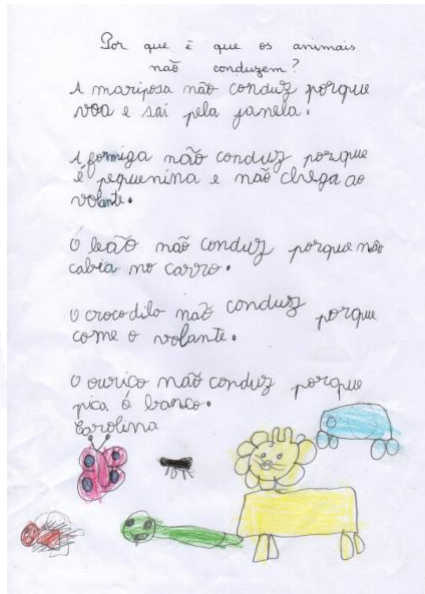 Por que é que os animais
não conduzem?
A mariposa não conduz porque
voa e sai pela janela.
A formiga não conduz porque
é pequenina e não chega ao
volante.
O leão não conduz porque não
cabia no carro.
O crocodilo não conduz porque
come o volante.
O ouriço não conduz porque
pica o banco.
Carolina